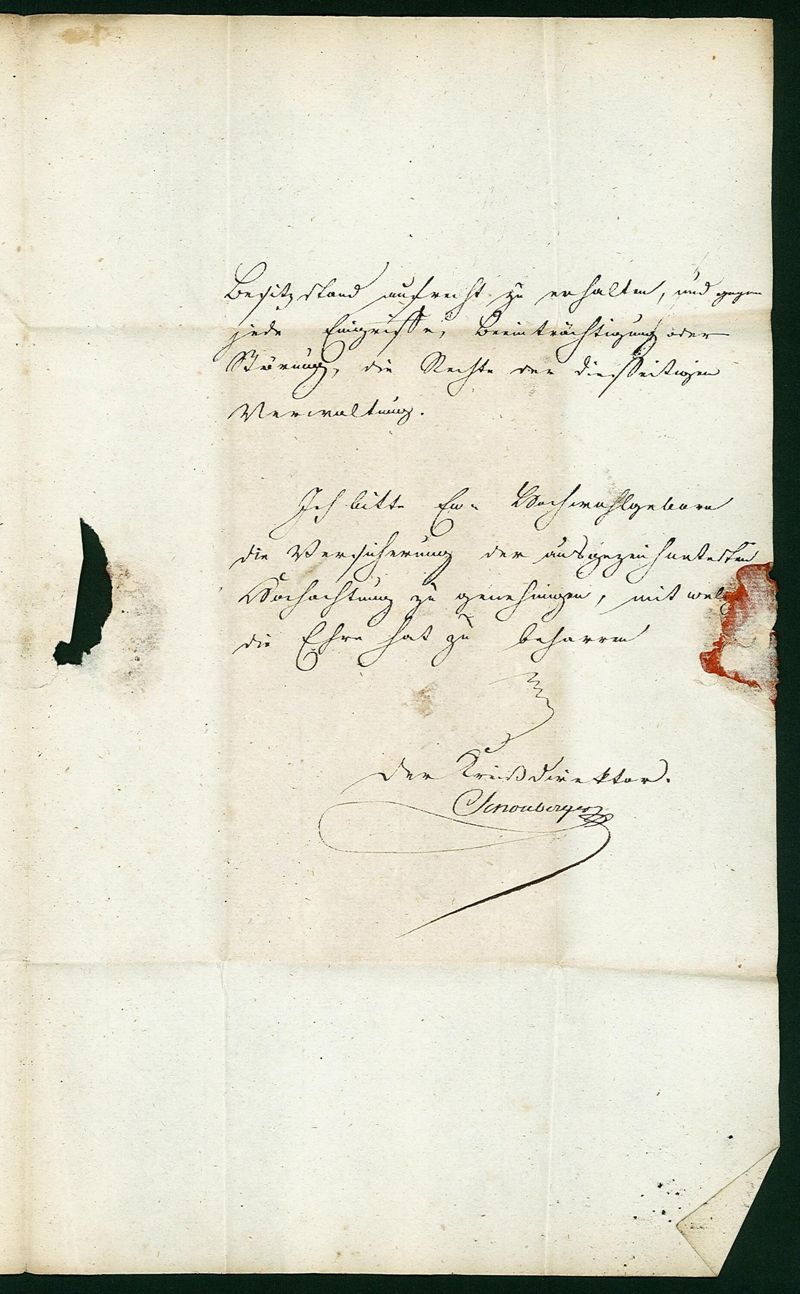 Besitzstand aufrecht zu erhalten, und gegen
jede Eingriffe, Beeinträchtigung oder
Störung, die Rechte der diesseitigen
Verwaltung.
Ich bitte Ew. Hochwohlgeborn
die Versicherung der ausgezeichnetesten
Hochachtung zu genehmigen, mit wel
die Ehre hat zu beharren
Der Kreisdirektor.